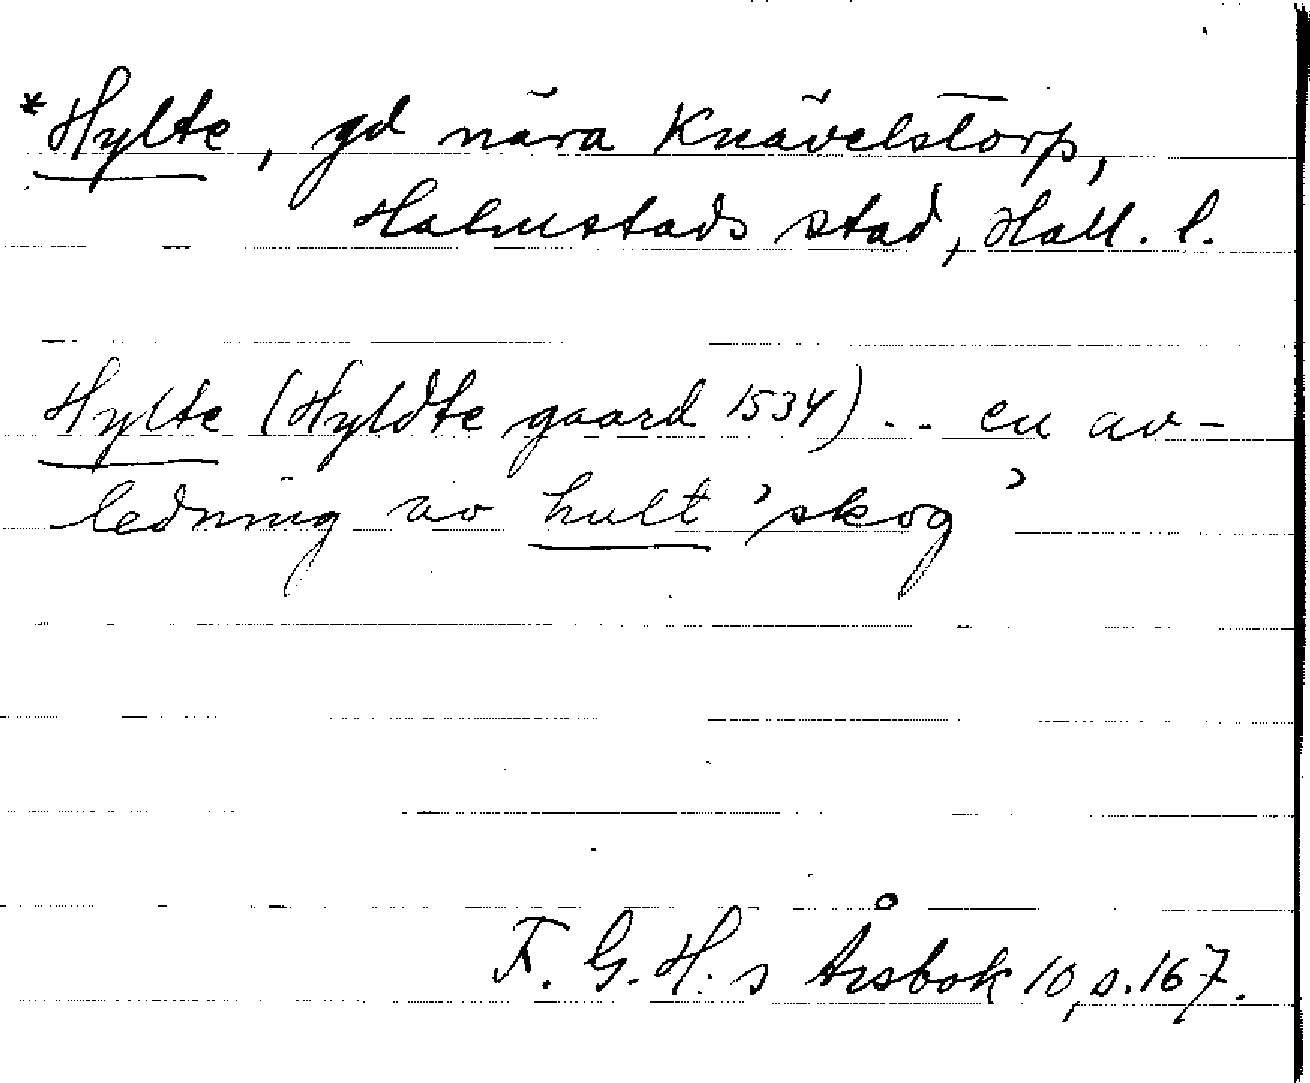 *Hylte, gd nära Knävelstorp,
Halmstads stad, Hall. l.
Hylte (Hyldte gaard 1534) .. en av-
ledning av hult 'skog'
F. G. H:s Årsbok 10, s. 167.